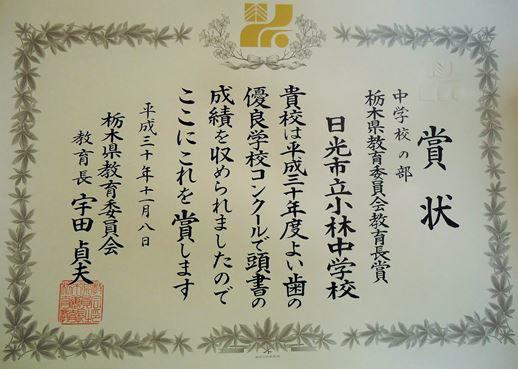 賞状
中学校の部
栃木県教育委員会教育長賞
日光市立小林中学校
貴校は平成三十年度よい歯の
優良学校コンクールで頭書の
成績を収められましたので
ここにこれを賞します
平成三十年十一月八日
栃木県教育委員会
教育長 宇田貞夫